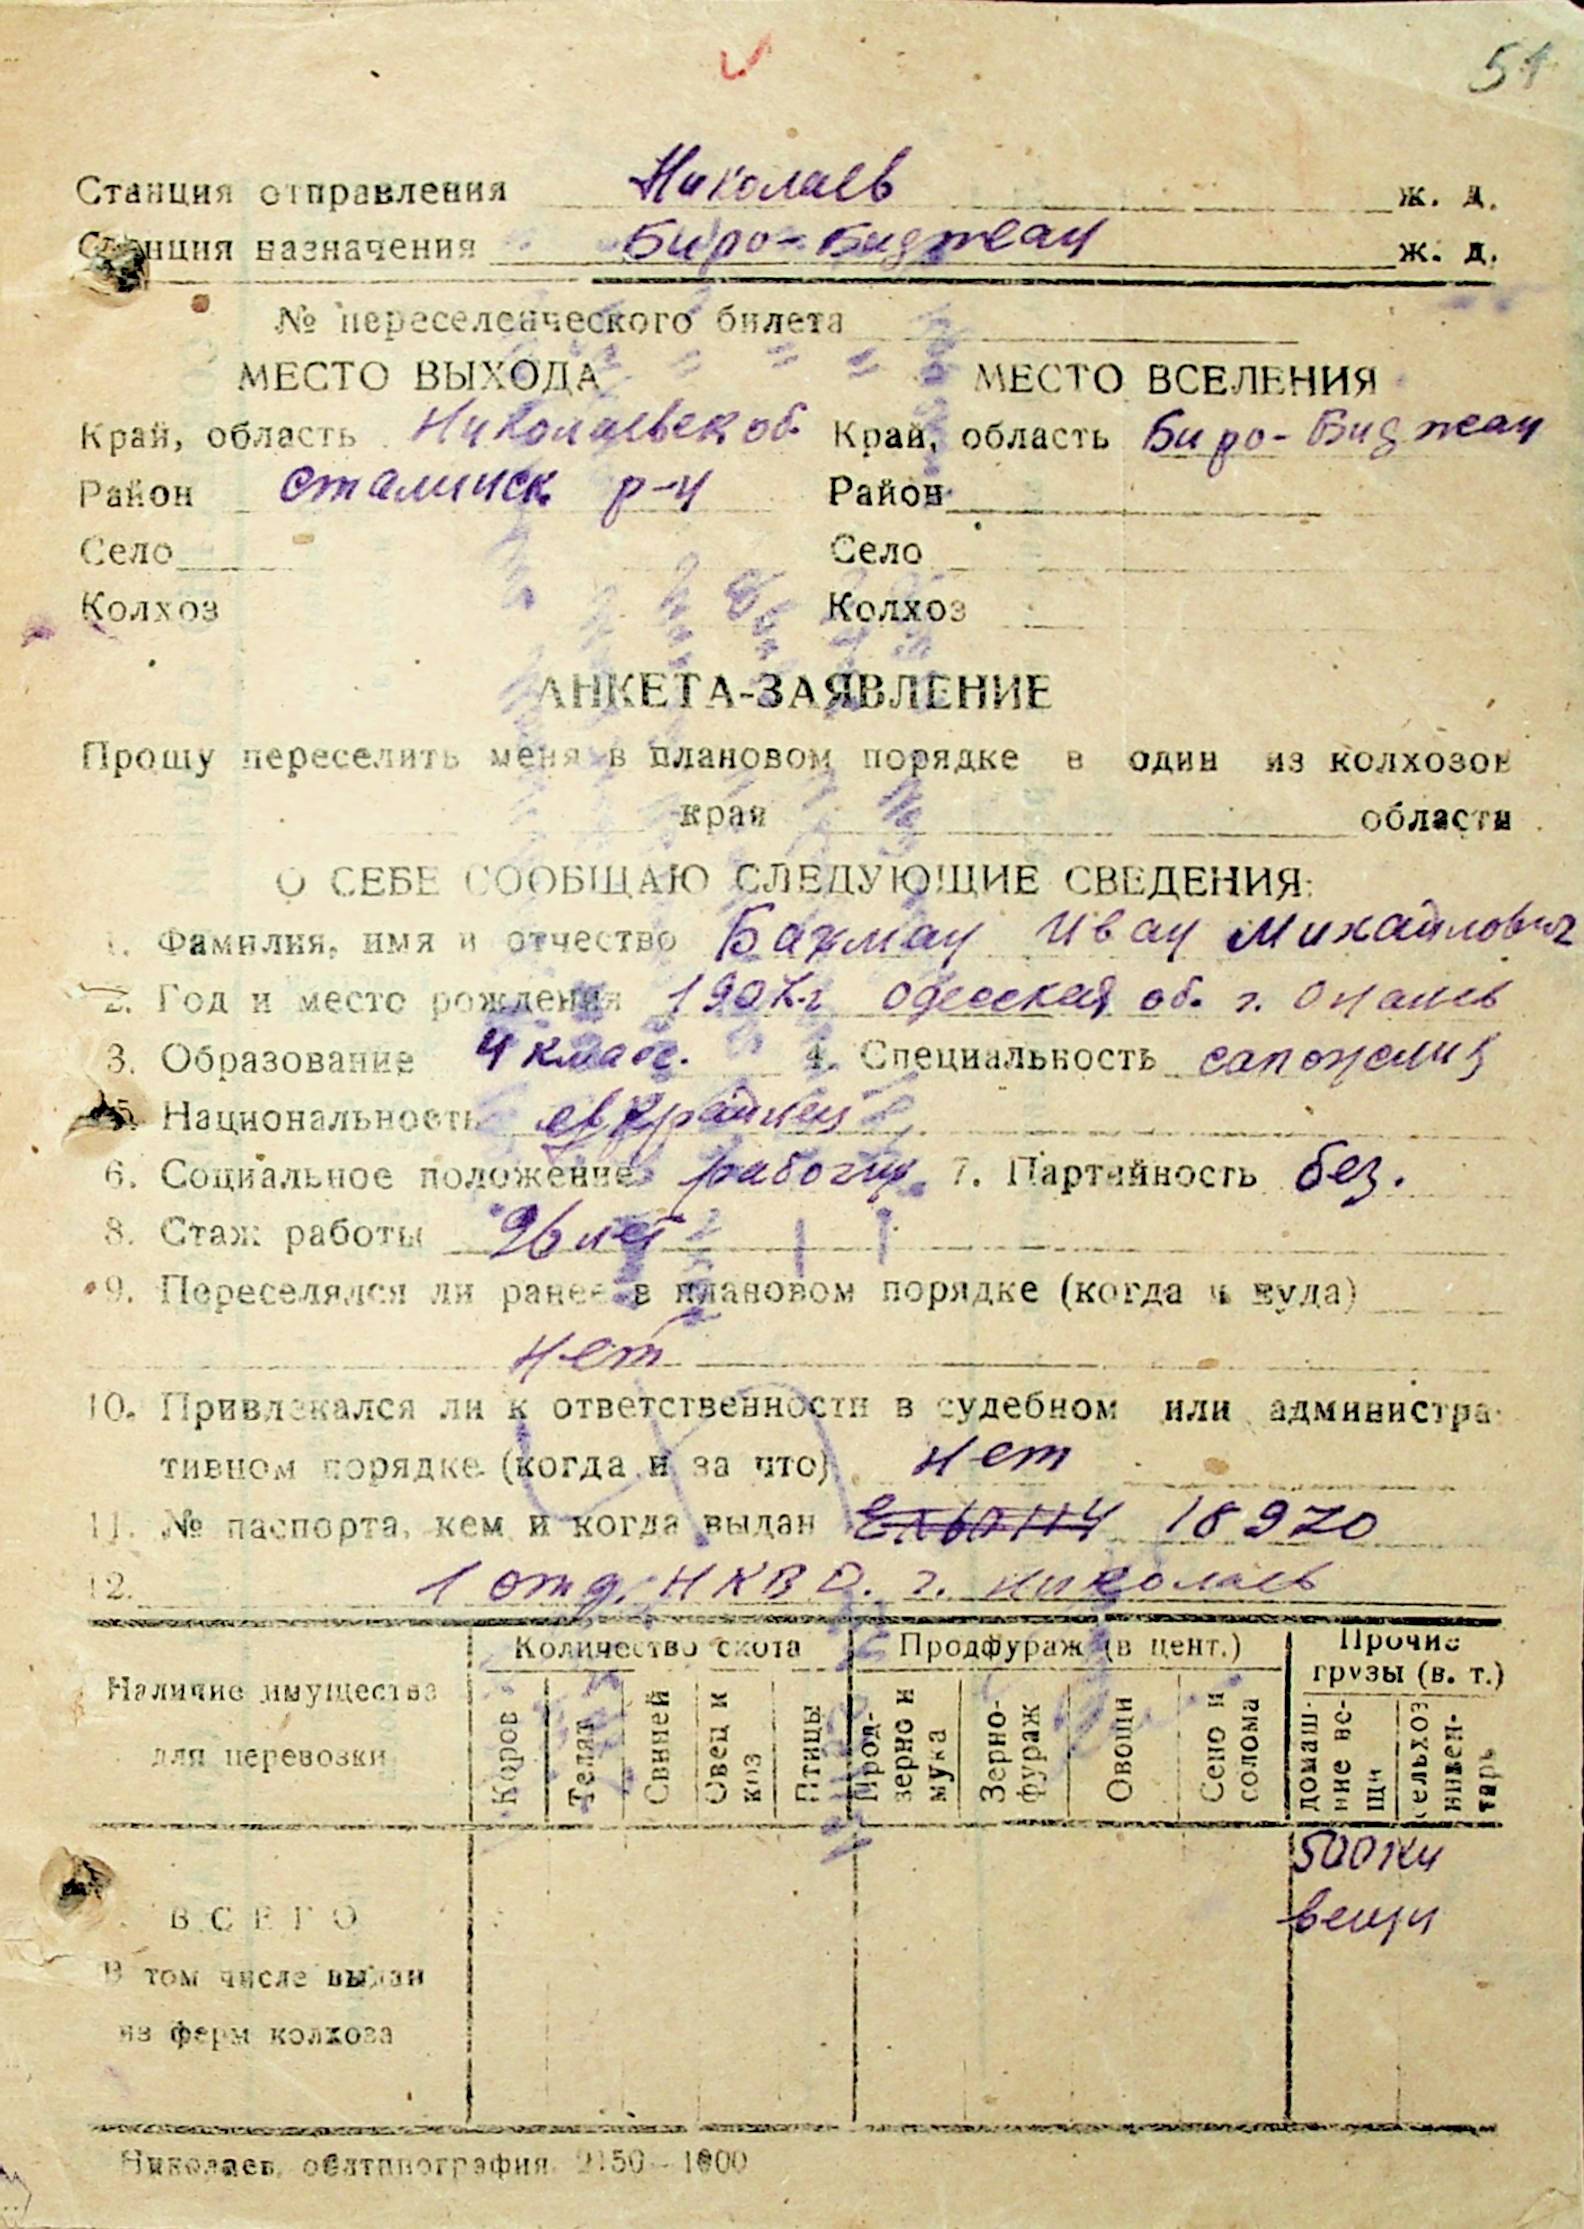 51
Станция отправления Николаев ж. д.
Станция назначения Биро-Биджан ж. д.
№ переселенческого билета
МЕСТО ВЫХОДА МЕСТО ВСЕЛЕНИЯ
Край, область Николаевск об. Край, область Биро-Биджан
Район Сталинск р-н Район
Село Село
Колхоз Колхоз
АНКЕТА-ЗАЯВЛЕНИЕ
Прошу переселить меня в плановом порядке в один из колхозов
края области
О СЕБЕ СООБЩАЮ СЛЕДУЮЩИЕ СВЕДЕНИЯ:
1. Фамилия, имя и отчество Бахман Иван Михайлович
2. Год и место рождения одесская об. г.
3. Образование 4 класс. 4. Специальность сапожник
5. Национальность
6. Социальное положение рабочий 7. Партийность без.
8. Стаж работы 26 лет
9. Переселялся ли ранее в плановом порядке (когда и куда)
нет
10. Привлекался ли к ответственности в судебном или администра-
тивном порядке (когда и за что) нет
11. № паспорта, кем и когда выдан 18970
12. 1 отд. НКВД. г. Николаев
Наличие имущества для перевозки
Количество скота Продфураж (в цент.) Прочие грузы (в. т.)
Коров Телят Свиней Овец и коз Птицы Прод-зерно и мука Зерно-фураж Овощи Сено и солома домаш-ние ве-щи сельхоз инвен-тарь
500 кг
вещи
ВСЕГО
В том числе выдан
из ферм колхоза
Николаев, облтипография 2150—1000